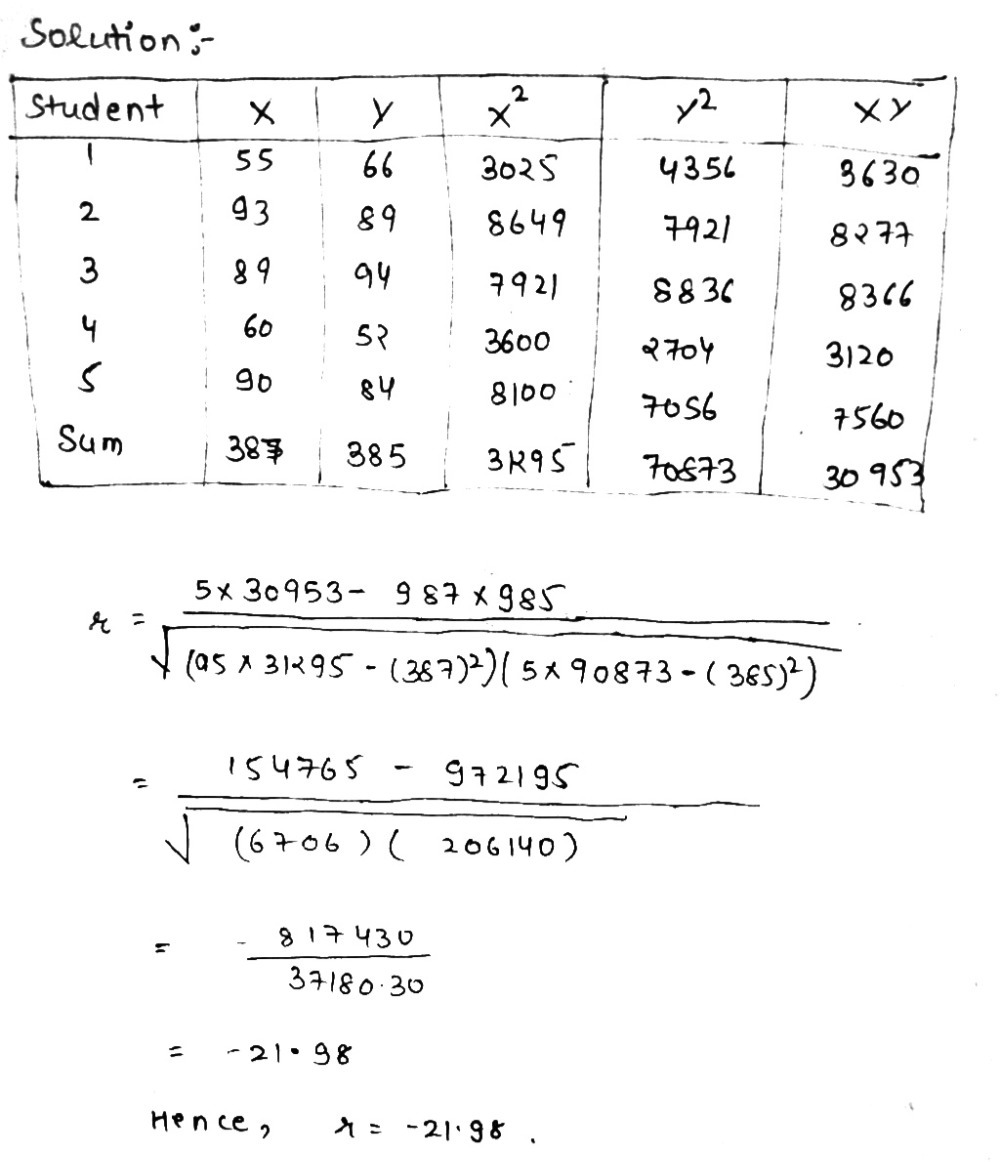 Solution :-
Student X Y X² Y² XY
1 55 66 3025 4356 3630
2 93 89 8649 7921 8277
3 89 94 7921 8836 8366
4 60 52 3600 2704 3120
5 90 84 8100 7056 7560
Sum 387 385 31295 70873 30953
r = 5x30953- 987x985
√(05x31295-(387)²)(5x90873-(385)²)
= 154765 - 972195
√(6706)(206140)
= - 817430
37180.30
= -21.98
Hence, r = -21.98.